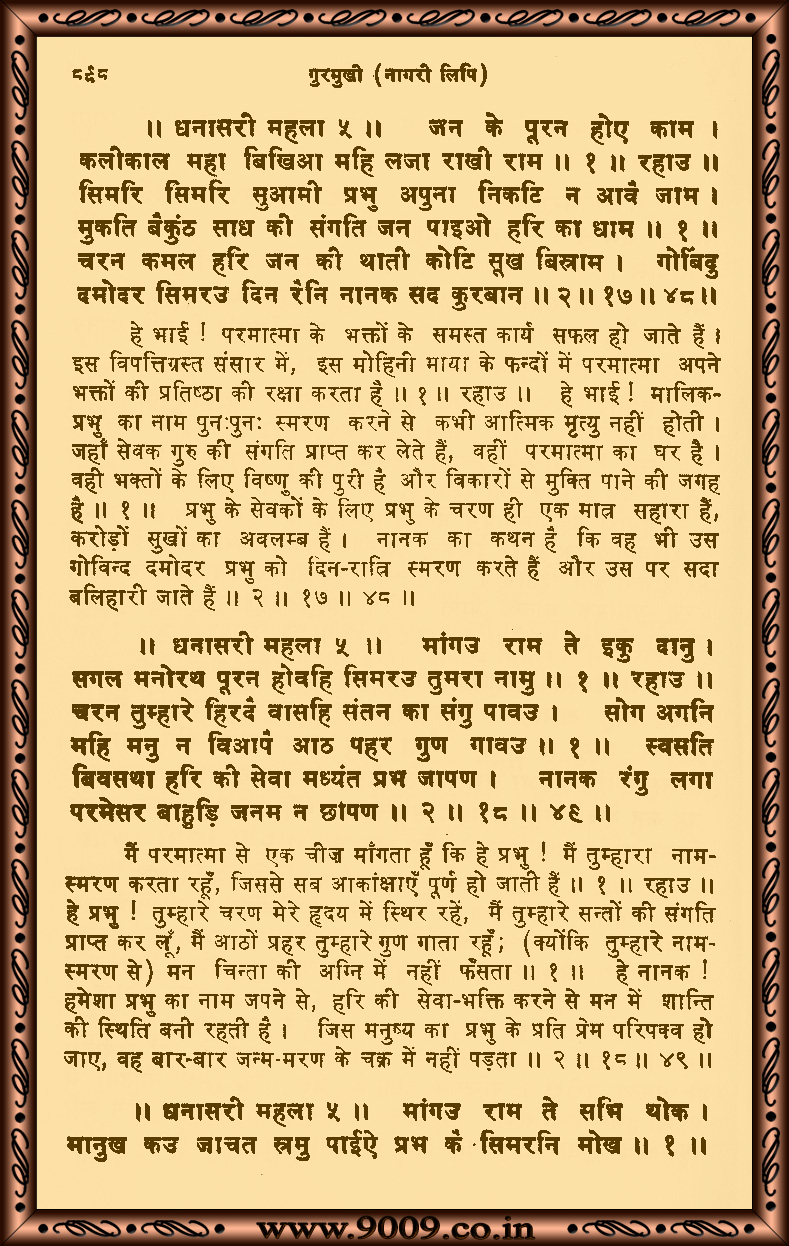 ८९८ गुरमुखी (नागरी लिपि)
।। धनासरी महला ५ ।। जन के पूरन होए काम ।
कलीकाल महा बिखिआ महि लजा राखी राम ।। १ ।। रहाउ ।।
सिमरि सिमरि सुआमी प्रभु अपुना निकटि न आवै जाम ।
मुकति बैकुंठ साध की संगति जन पाइओ हरि का धाम ।। १ ।।
चरन कमल हरि जन की थाती कोटि सूख बिस्राम । गोबिंदु
दमोदर सिमरउ दिन रैनि नानक सद कुरबान ।। २ ।। १७ ।। ४८ ।।
हे भाई ! परमात्मा के भक्तों के समस्त कार्य सफल हो जाते हैं ।
इस विपत्तिग्रस्त संसार में, इस मोहिनी माया के फन्दों में परमात्मा अपने
भक्तों की प्रतिष्ठा की रक्षा करता है ।। १ ।। रहाउ ।। हे भाई ! मालिक-
प्रभु का नाम पुनःपुनः स्मरण करने से कभी आत्मिक मृत्यु नहीं होती ।
जहाँ सेवक गुरु की संगति प्राप्त कर लेते हैं, वहीं परमात्मा का घर है ।
वही भक्तों के लिए विष्णु की पुरी है और विकारों से मुक्ति पाने की जगह
है ।। १ ।। प्रभु के सेवकों के लिए प्रभु के चरण ही एक मात्र सहारा हैं,
करोड़ों सुखों का अवलम्ब हैं । नानक का कथन है कि वह भी उस
गोविन्द दमोदर प्रभु को दिन-रात्रि स्मरण करते हैं और उस पर सदा
बलिहारी जाते हैं ।। २ ।। १७ ।। ४८ ।।
।। धनासरी महला ५ ।। मांगउ राम ते इकु दानु ।
सगल मनोरथ पूरन होवहि सिमरउ तुमरा नामु ।। १ ।। रहाउ ।।
चरन तुम्हारे हिरदै वासहि संतन का संगु पावउ । सोग अगनि
महि मनु न विआपै आठ पहर गुण गावउ ।। १ ।। स्वसति
बिवसथा हरि की सेवा मध्यंत प्रभ जापण । नानक रंगु लगा
परमेसर बाहुड़ि जनम न छापण ।। २ ।। १८ ।। ४९ ।।
मैं परमात्मा से एक चीज़ माँगता हूँ कि हे प्रभु ! मैं तुम्हारा नाम-
स्मरण करता रहूँ, जिससे सब आकांक्षाएँ पूर्ण हो जाती हैं ।। १ ।। रहाउ ।।
हे प्रभु ! तुम्हारे चरण मेरे हृदय में स्थिर रहें, मैं तुम्हारे सन्तों की संगति
प्राप्त कर लूँ, मैं आठों प्रहर तुम्हारे गुण गाता रहूँ; (क्योंकि तुम्हारे नाम-
स्मरण से) मन चिन्ता की अग्नि में नहीं फँसता ।। १ ।। हे नानक !
हमेशा प्रभु का नाम जपने से, हरि की सेवा-भक्ति करने से मन में शान्ति
की स्थिति बनी रहती है । जिस मनुष्य का प्रभु के प्रति प्रेम परिपक्व हो
जाए, वह बार-बार जन्म-मरण के चक्र में नहीं पड़ता ।। २ ।। १८ ।। ४९ ।।
।। धनासरी महला ५ ।। मांगउ राम ते सभि थोक ।
मानुख कउ जाचत स्रमु पाईऐ प्रभ कै सिमरनि मोख ।। १ ।।
www.9009.co.in